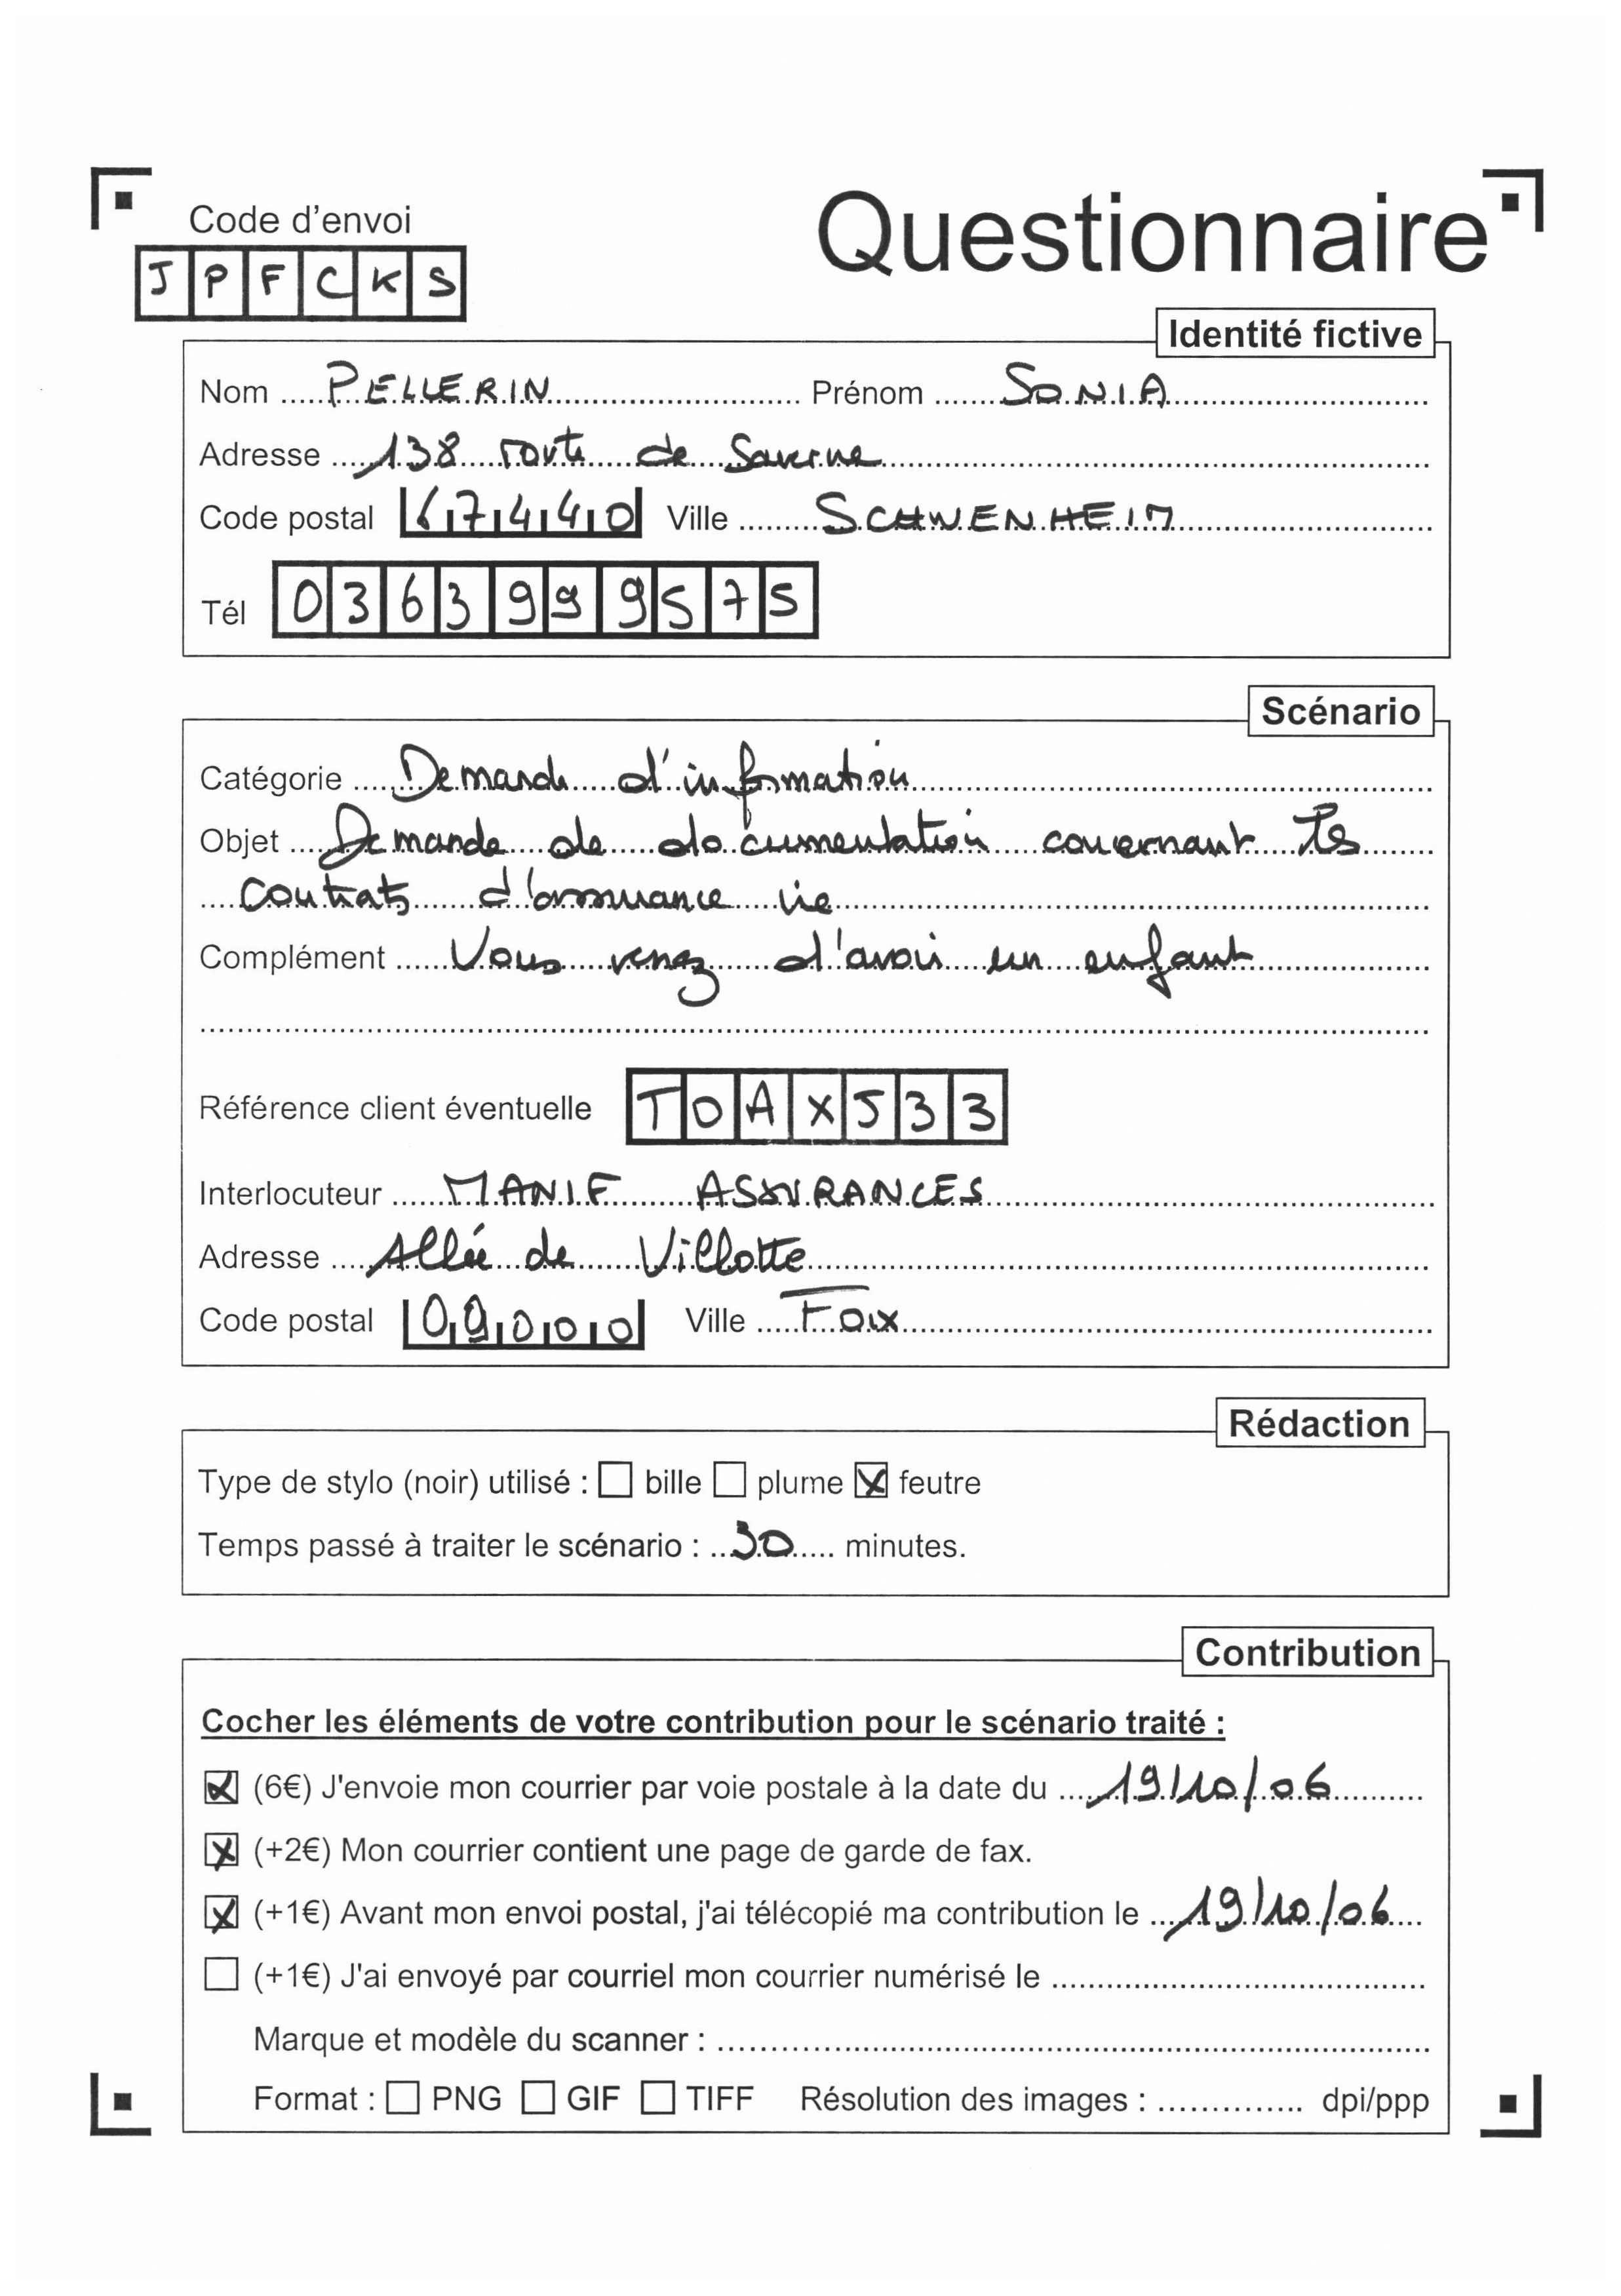 Code d'envoi
Questionnaire
JPFCKS
Identité fictive
Nom PELLERIN Prénom SONIA
Adresse 138 route de Saverne
Code postal 67440 Ville SCHWENHEIM
Tél 0363999575
Scénario
Catégorie Demande d'information
Objet Demande de documentation concernant les
contrats d'assurance vie
Complément Vous venez d'avoir un enfant
Référence client éventuelle TOAX533
Interlocuteur MANIF ASSURANCES
Adresse Allée de Villotte
Code postal 09000 Ville Foix
Rédaction
Type de stylo (noir) utilisé : bille plume feutre
Temps passé à traiter le scénario : 30 minutes.
Contribution
Cocher les éléments de votre contribution pour le scénario traité :
(6€) J'envoie mon courrier par voie postale à la date du 19/10/06
(+2€) Mon courrier contient une page de garde de fax.
(+1€) Avant mon envoi postal, j'ai télécopié ma contribution le 19/10/06
(+1€) J'ai envoyé par courriel mon courrier numérisé le
Marque et modèle du scanner :
Format : PNG GIF TIFF Résolution des images : dpi/ppp